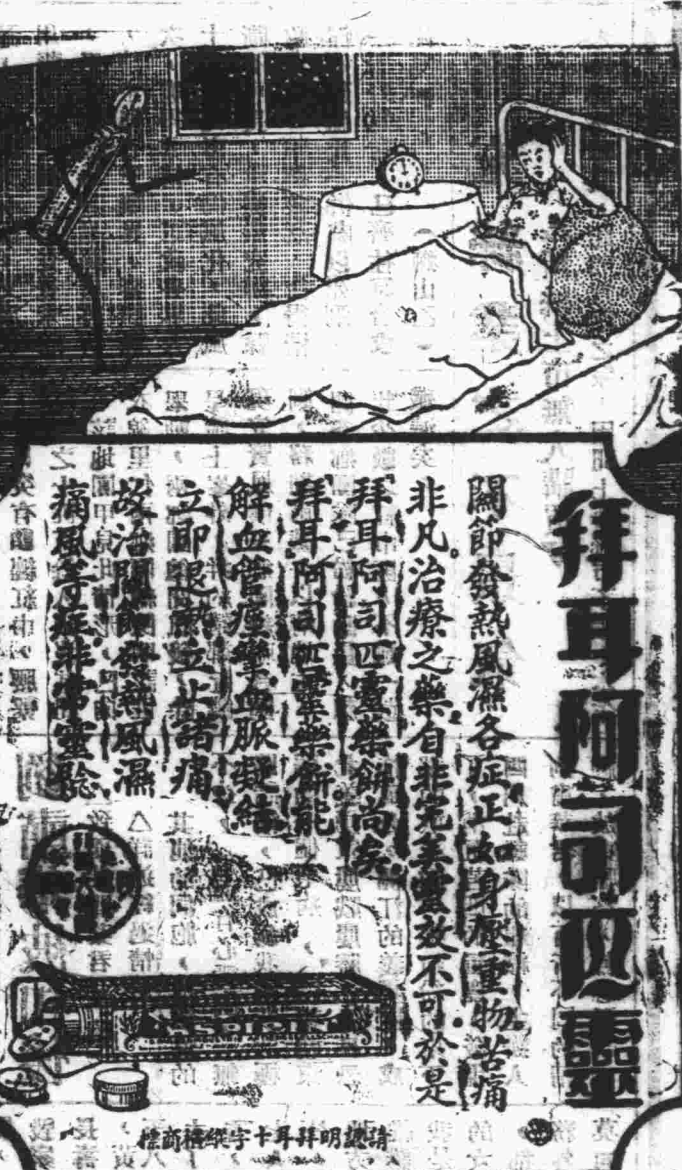 拜耳阿司匹靈
關節發熱風濕各症。正如身壓重物。苦痛
非凡。治療之藥。自非完美靈效不可。於是
拜耳阿司匹靈藥餅尚矣。
拜耳阿司匹靈藥餅。能
解血管痙攣。血脈凝結。
立即退熱。立止諸痛。
故治關節發熱風濕
痛風等症非常靈驗
ASPIRIN
請認明拜耳十字商標